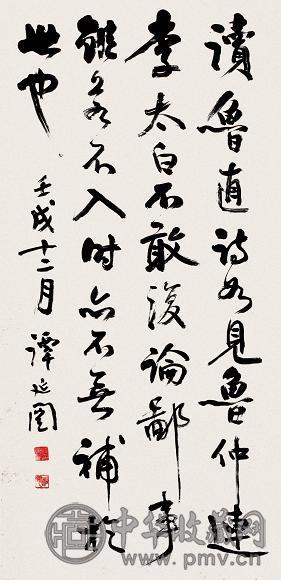 讀魯直詩如見魯仲連
李太白不敢復論鄙事
雖若不入時亦不無補於
世也
壬戌十二月 譚延闓
中华收藏网
www.pmv.cn